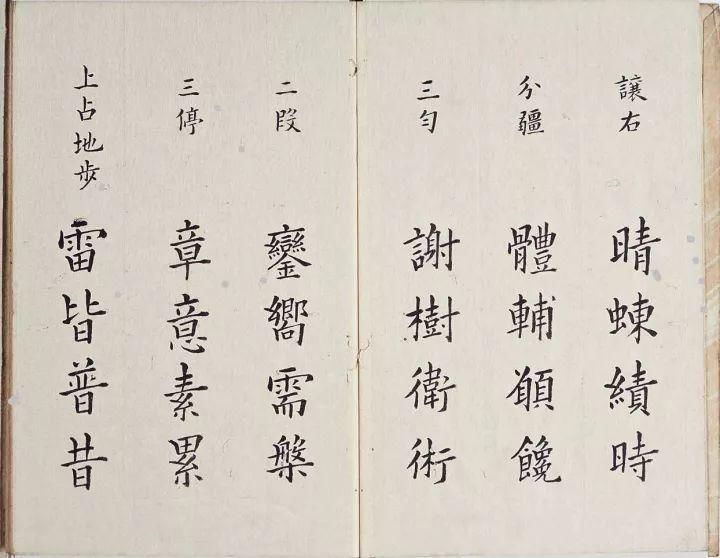 讓右
晴蝀績時
分疆
體輔願饞
三勻
謝樹衛術
二段
鑾嚮需槃
三停
章意素累
上占地步
雷皆普昔